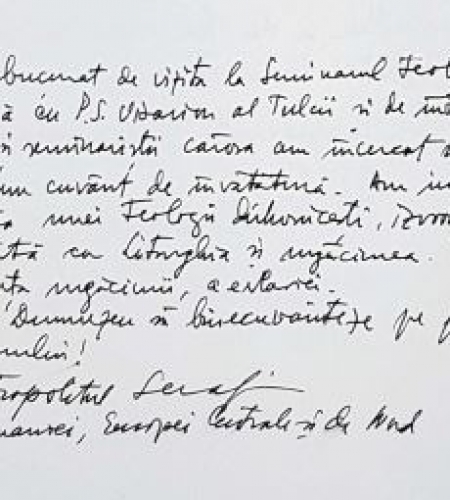 bucurat de vizita la Seminarul Teol
ă cu P.S. Visarion al Tulcii și de înt
și seminariștii cărora am încercat s
un cuvânt de învățătură. Am in
a unei Teologii duhovnicești, izvor
tă cu Liturghia și rugăciunea.
ța rugăciunii, a
Dumnezeu să binecuvânteze pe p
ului!
tropolitul Serafim
maniei, Europei Centrale și de Nord